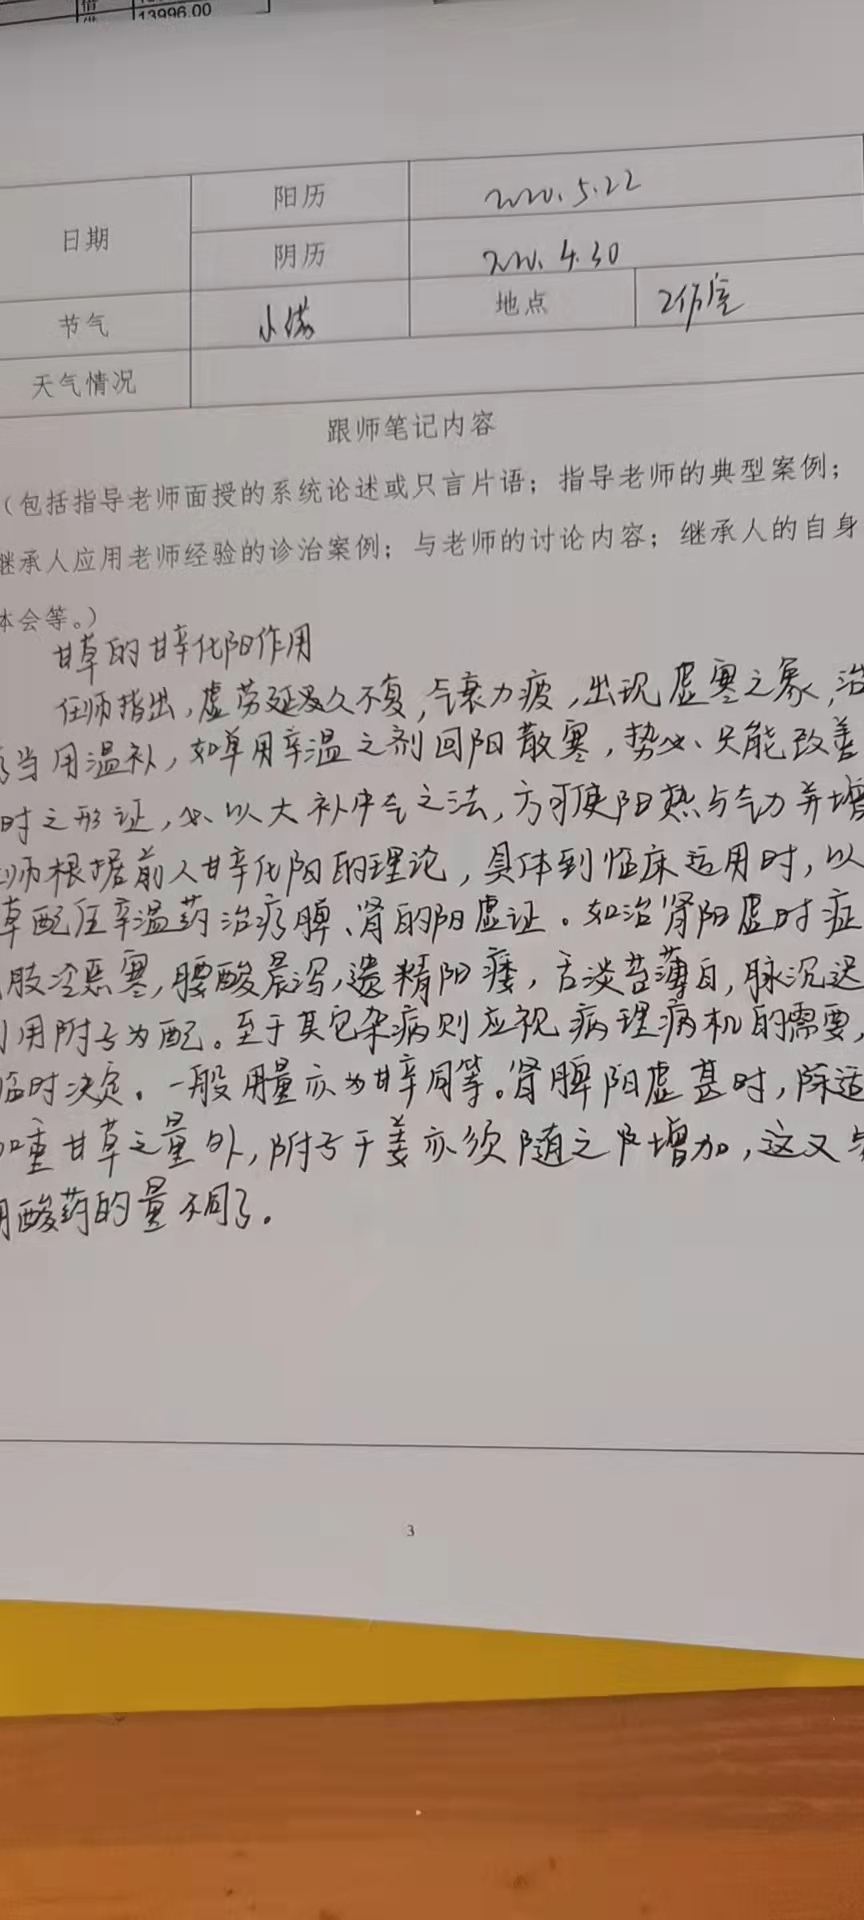 13996.00
日期 阳历 2020.5.22
阴历 2020.4.30
节气 小满 地点 工作室
天气情况
跟师笔记内容
（包括指导老师面授的系统论述或只言片语；指导老师的典型案例；
继承人应用老师经验的诊治案例；与老师的讨论内容；继承人的自身
体会等。）
甘草的甘辛化阳作用
任师指出，虚劳延及久不复，气衰力疲，出现虚寒之象，治
当用温补，如单用辛温之剂回阳散寒，势必、只能改善
时之形证，必以大补中气之法，方可使阳热与气力并增
师根据前人甘辛化阳的理论，具体到临床运用时，以
草配伍辛温药治疗脾、肾的阳虚证。如治肾阳虚时症
肢冷恶寒，腰酸晨泻，遗精阳痿，舌淡苔薄白，脉沉迟
用附子为配。至于其它杂病则应视病理病机的需要，
临时决定。一般用量亦为甘辛同等。肾脾阳虚甚时，除适
加重甘草之量外，附子干姜亦须随之增加，这又与
用酸药的量不同了。
3